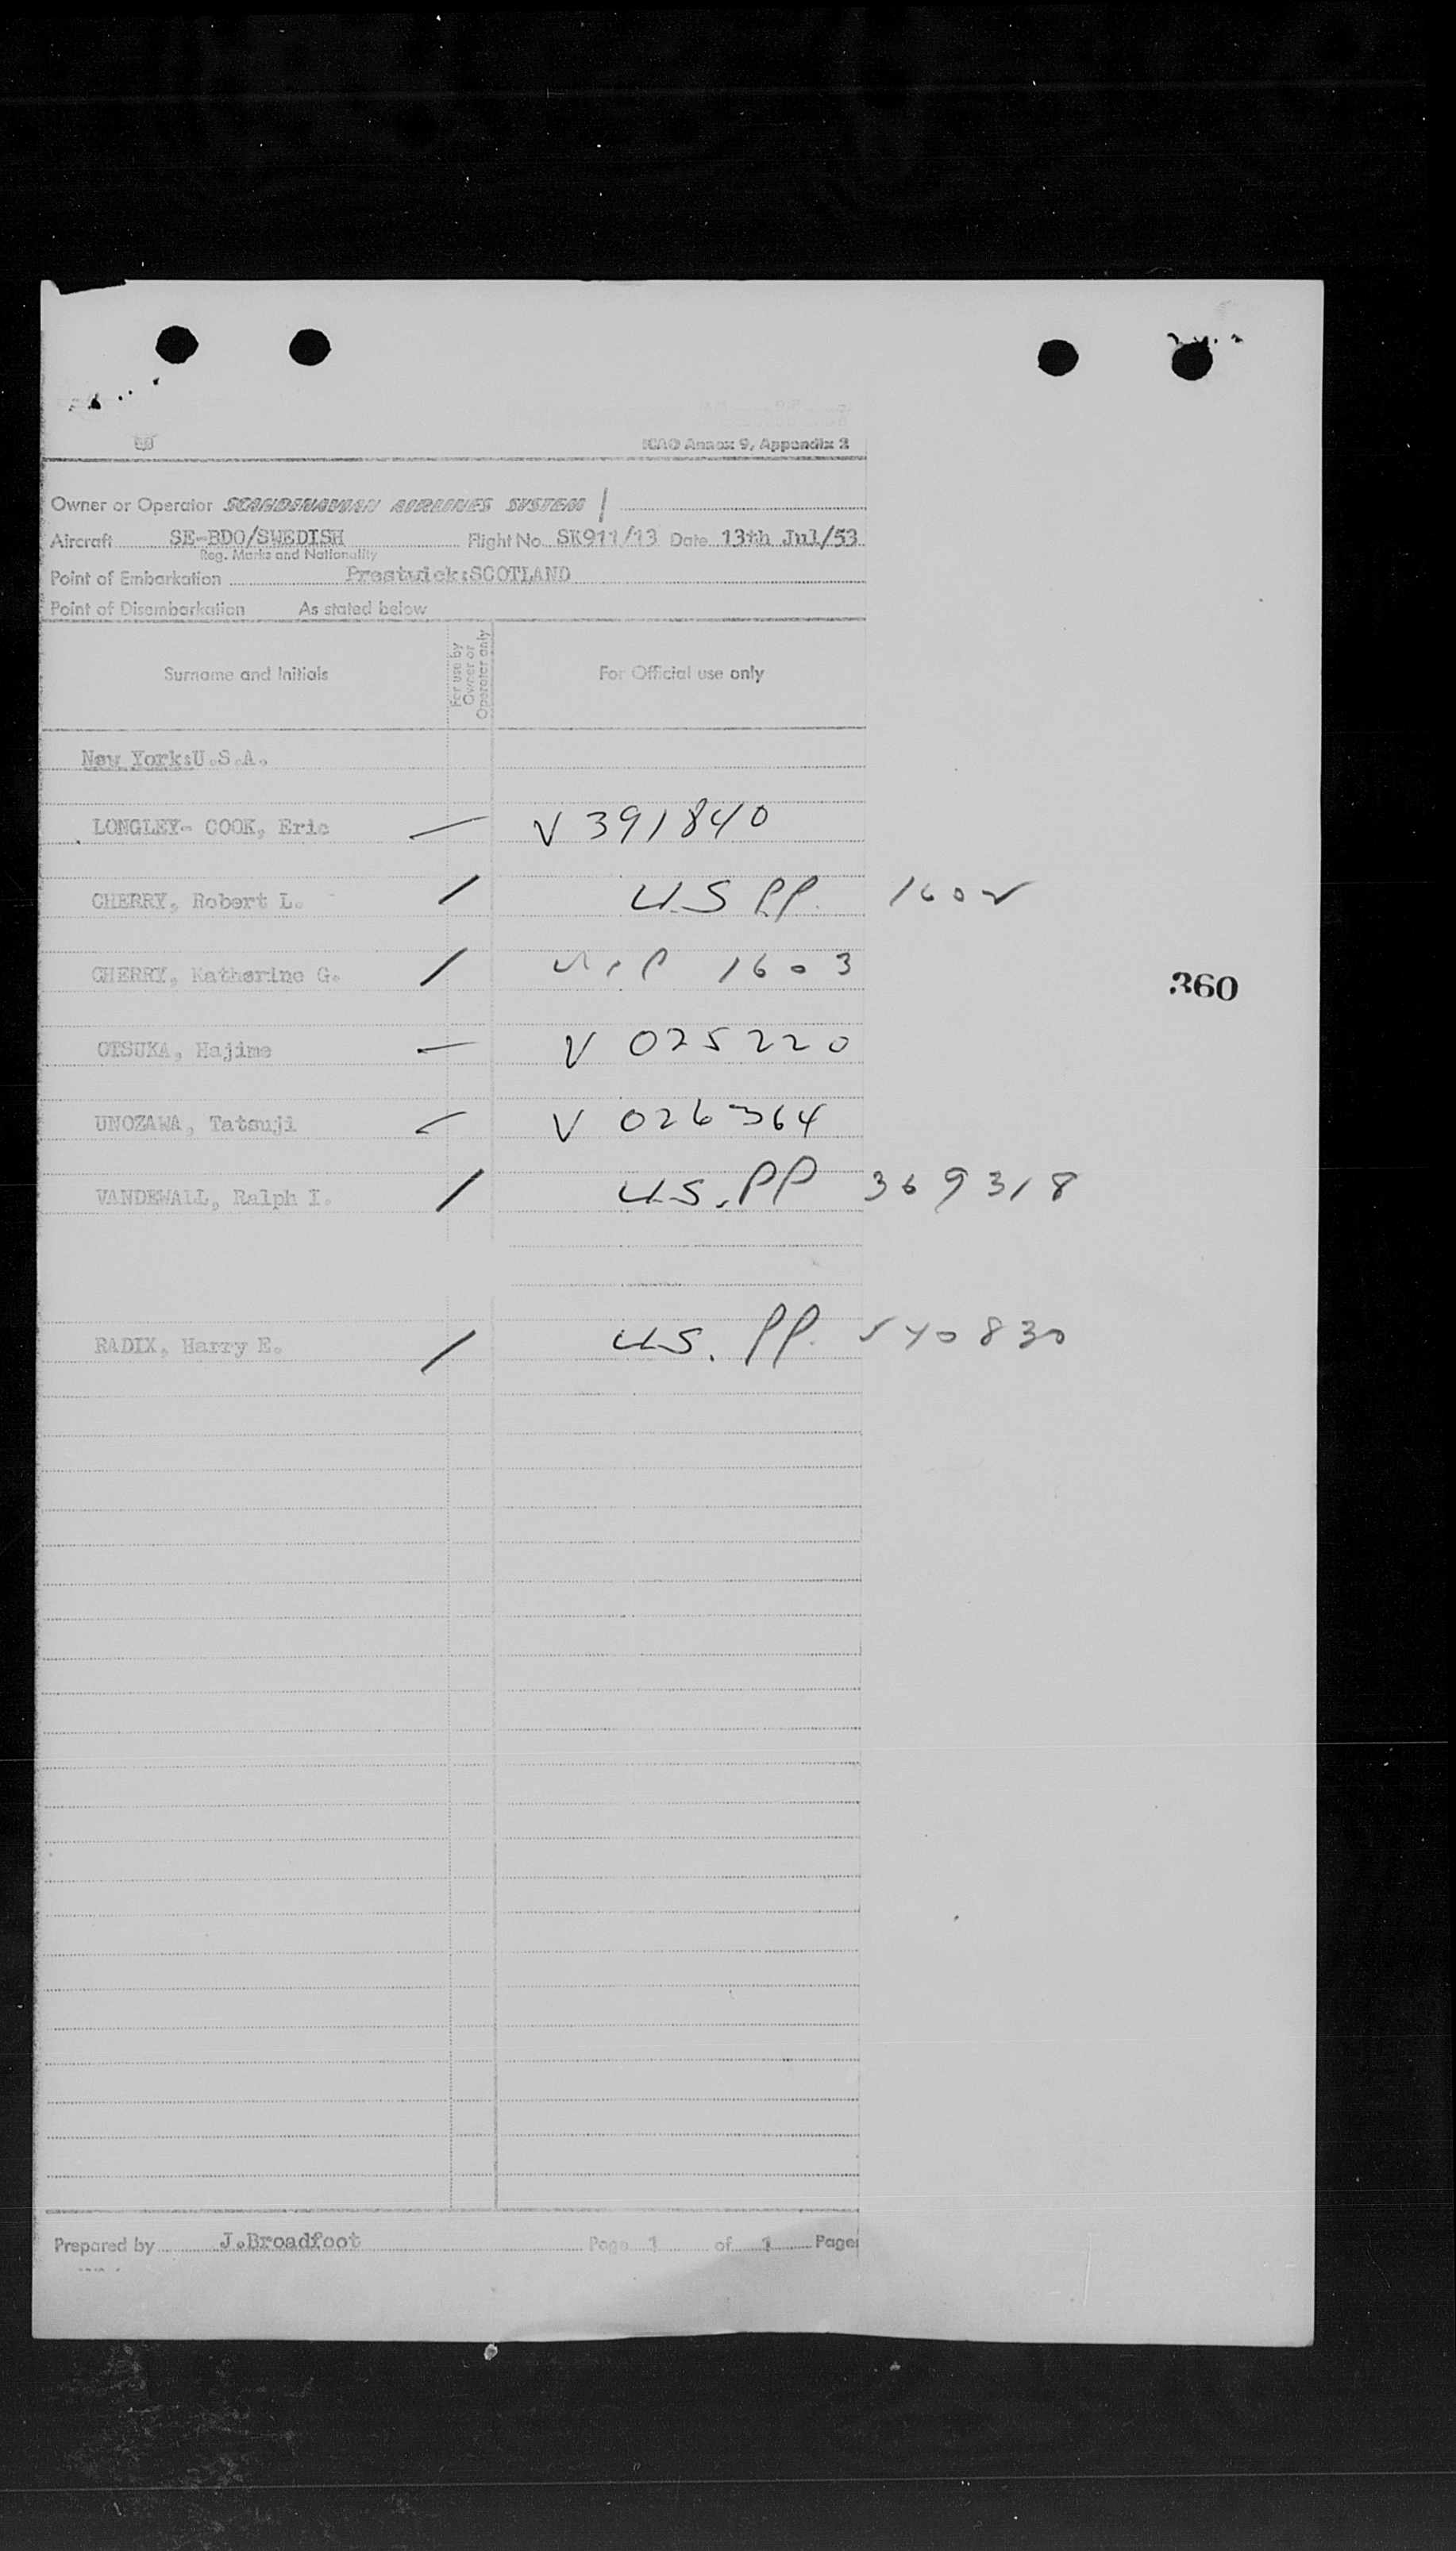 ICAO Annex 9, Appendix 2
Owner or Operator SCANDINAVIAN AIRLINES SYSTEM
Aircraft SE-BDO/SWEDISH Flight No. SK911/13 Date 13th Jul/53
Reg. Marks and Nationality
Point of Embarkation Prestwick:SCOTLAND
Point of Disembarkation As stated below
Surname and Initials For use by Owner or Operator only For Official use only
New York:U.S.A.
LONGLEY- COOK, Eric — V 391840
CHERRY, Robert L. / U.S PP. 1602
CHERRY, Katherine G. / 1603
360
OTSUKA, Hajime — V 025220
UNOZAWA, Tatsuji — V 026364
VANDEWALL, Ralph I. / U.S. PP 369318
RADIX, Harry E. / U.S. PP. 540830
Prepared by J.Broadfoot Page 1 of 1 Pages